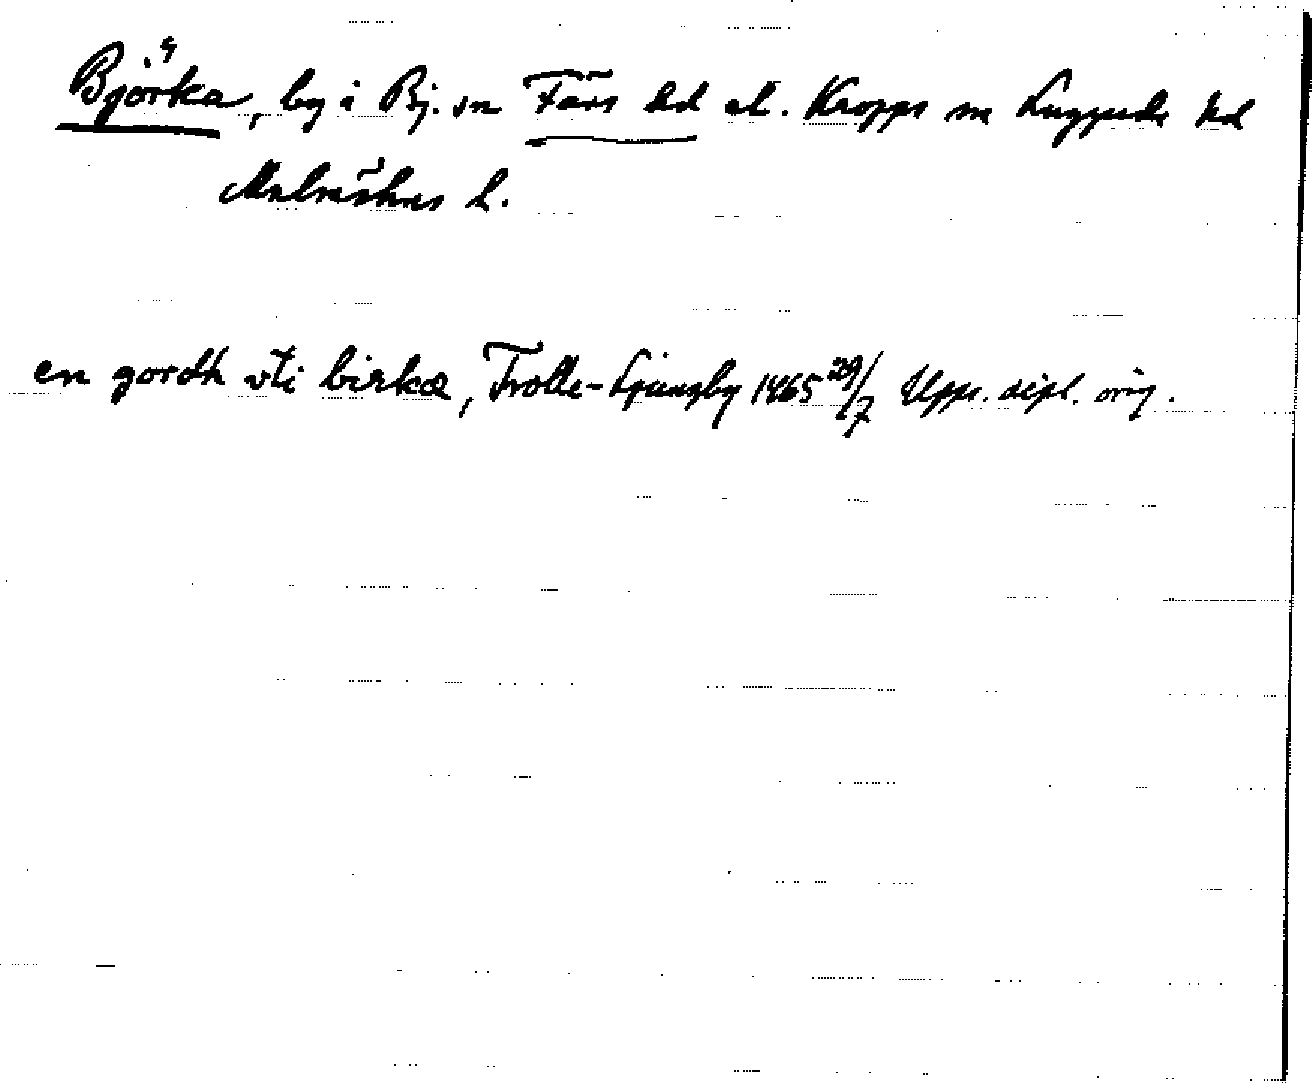 Björka, by i Bj. sn Färs hd el. Kropps sn Luggude hd
Malmöhus l.
en gordh vti birkæ, Trolle-Ljungby 1465 29/7 Upps. dipl. orig.